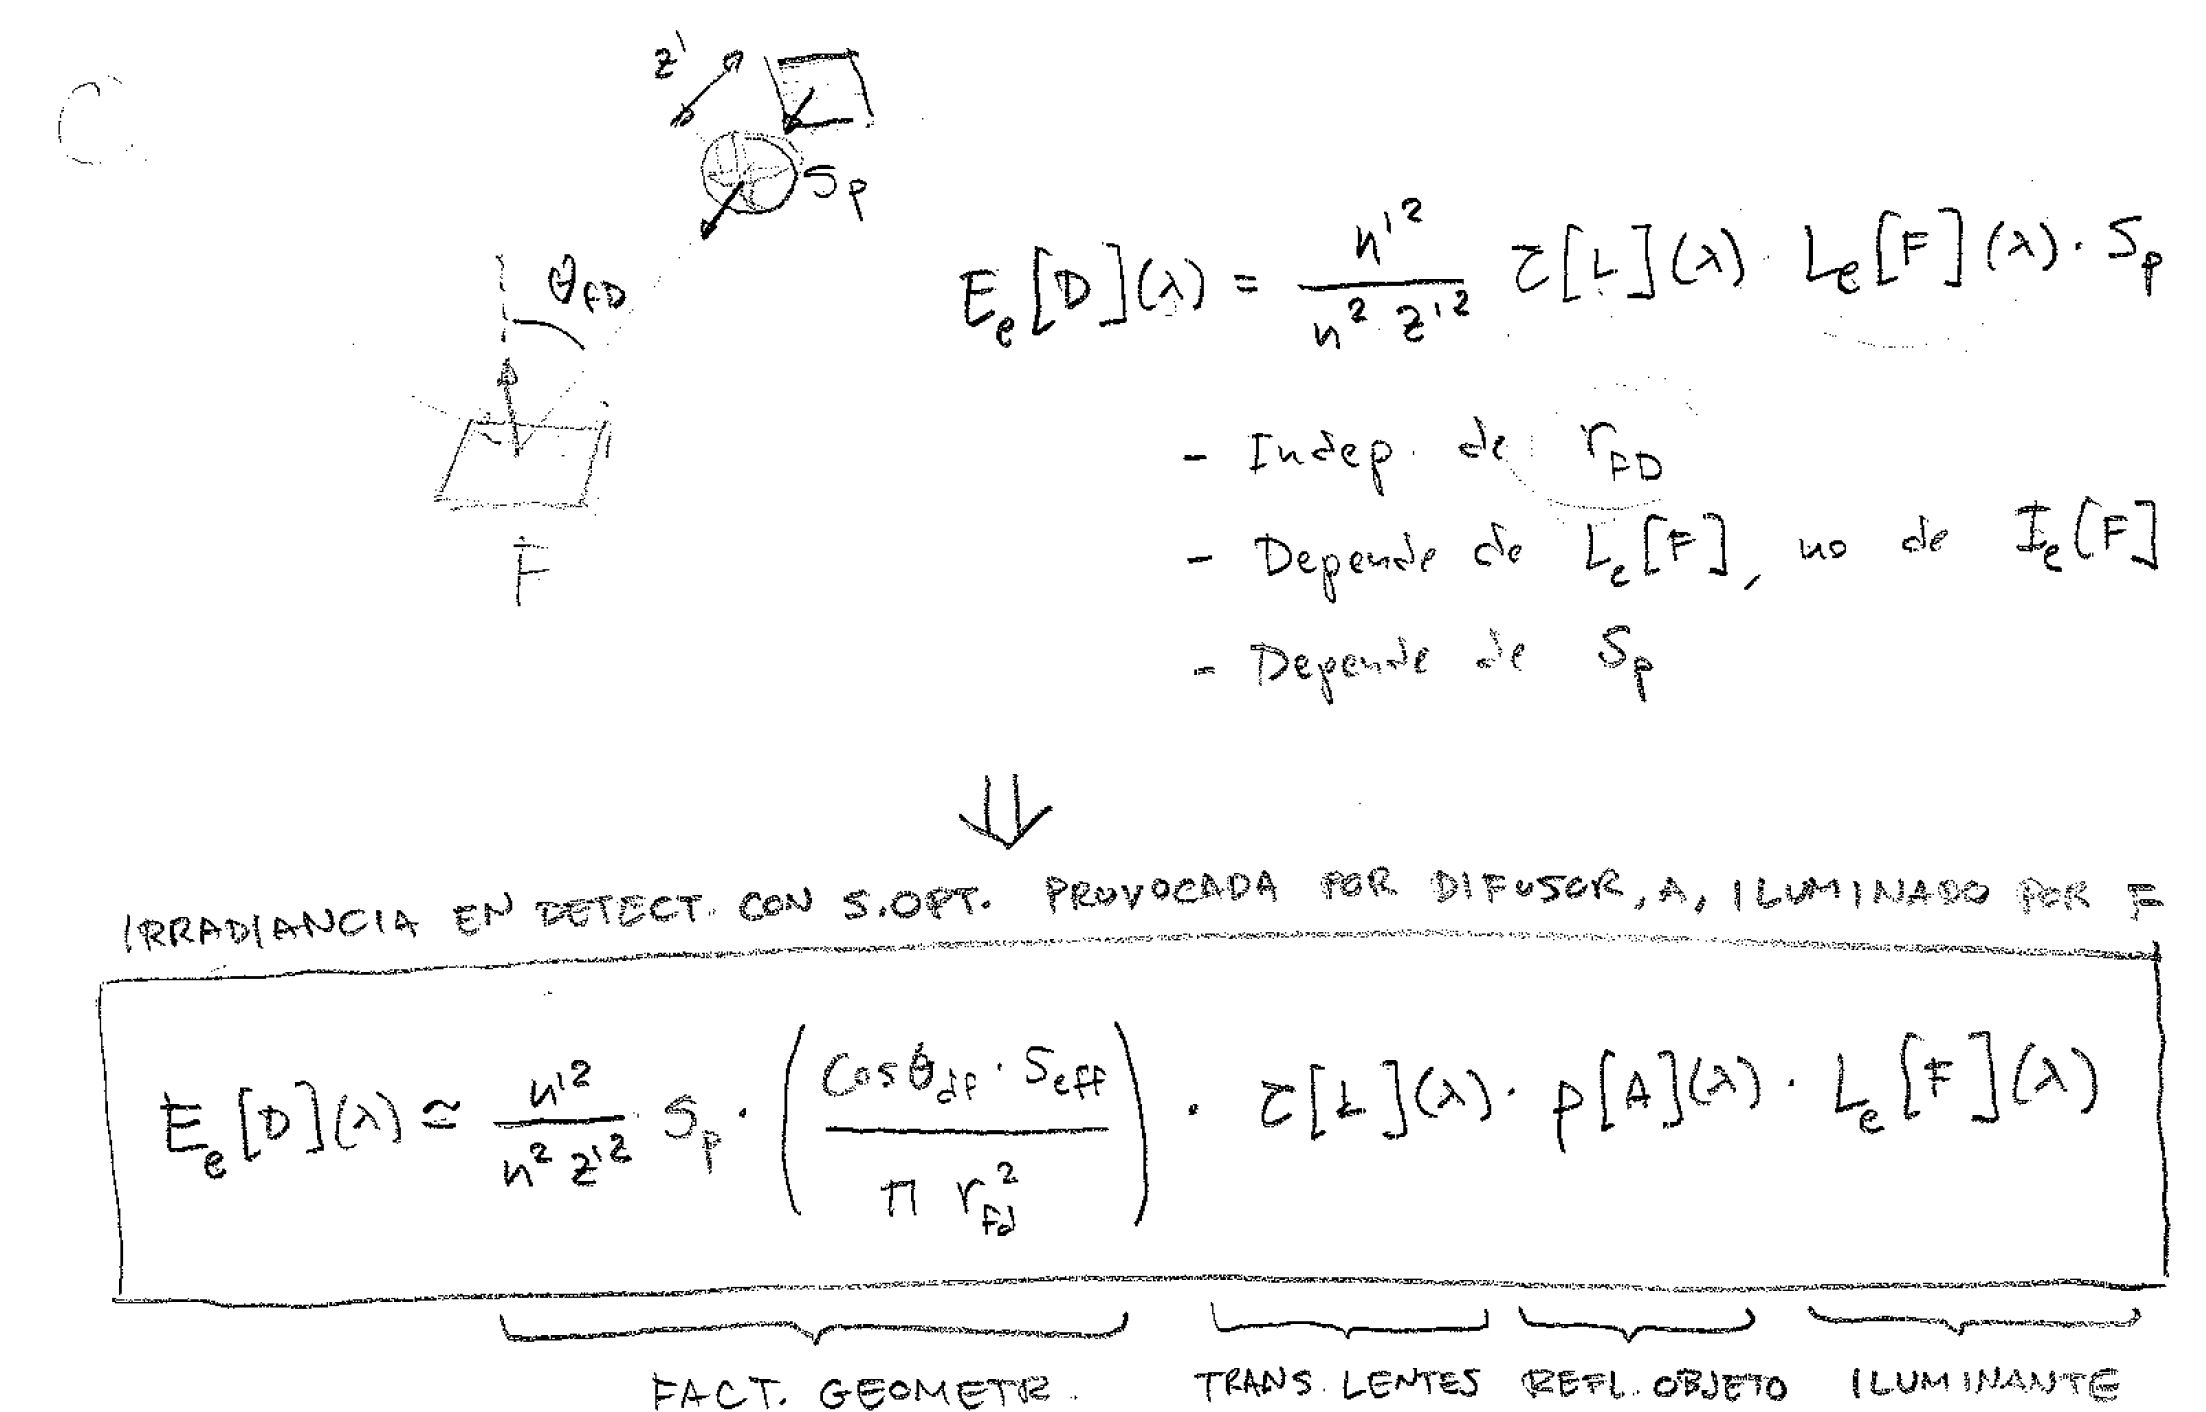 z'
S_p
θ_FD
F
E_e[D](λ) = n'² / (n² z'²) τ[L](λ) · L_e[F](λ) · S_p
- Indep. de r_FD
- Depende de L_e[F], no de I_e[F]
- Depende de S_p
⇓
IRRADIANCIA EN DETECT. CON S.OPT. PROVOCADA POR DIFUSOR, A, ILUMINADO POR F
E_e[D](λ) ≃ n'² / (n² z'²) · S_p · (cosθ_df · S_eff / (π r_Fd²)) · τ[L](λ) · ρ[A](λ) · L_e[F](λ)
FACT. GEOMETR. TRANS. LENTES REFL. OBJETO ILUMINANTE